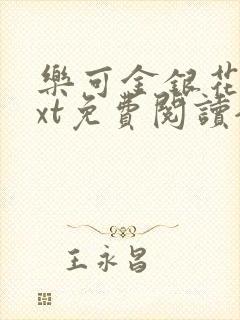 樂可金銀花
xt免費閱讀
王永昌